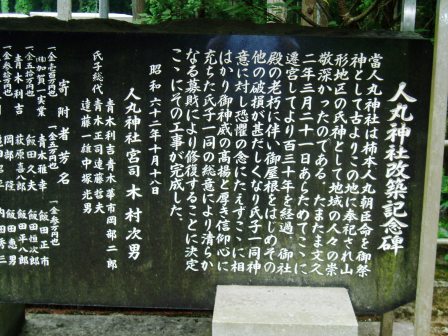 人丸神社改築記念碑
當人丸神社は柿本人丸朝臣命を御祭
神として古よりこの地に奉祀され山
形地区の氏神として地域の人々の崇
敬深かったのである たまたま文久
二年三月二十一日あらためてここに
遷宮してより百三十年を経過 御社
殿の老朽に伴い御屋根をはじめその
他の破損が甚だしくなり氏子一同神
意に対し恐懼の念にたえずここに相
はかり御神威の高揚と厚き信仰心に
充ちた氏子一同の総意により清らか
なる募財により修復することに決定
ここにその工事が完成した
昭和六十二年十月十八日
人丸神社 宮司 木村次男
青木利吉 青木幕市 岡部二郎
氏子総代 青木正司 遠藤哲
遠藤一雄 中塚光男
寄附者芳名
一金壱百万円也
青木利吉
一金五十万円也
一金参拾万円也
一金参万円也
飯田正市
飯田恒次郎
飯田平八郎
飯田惠男